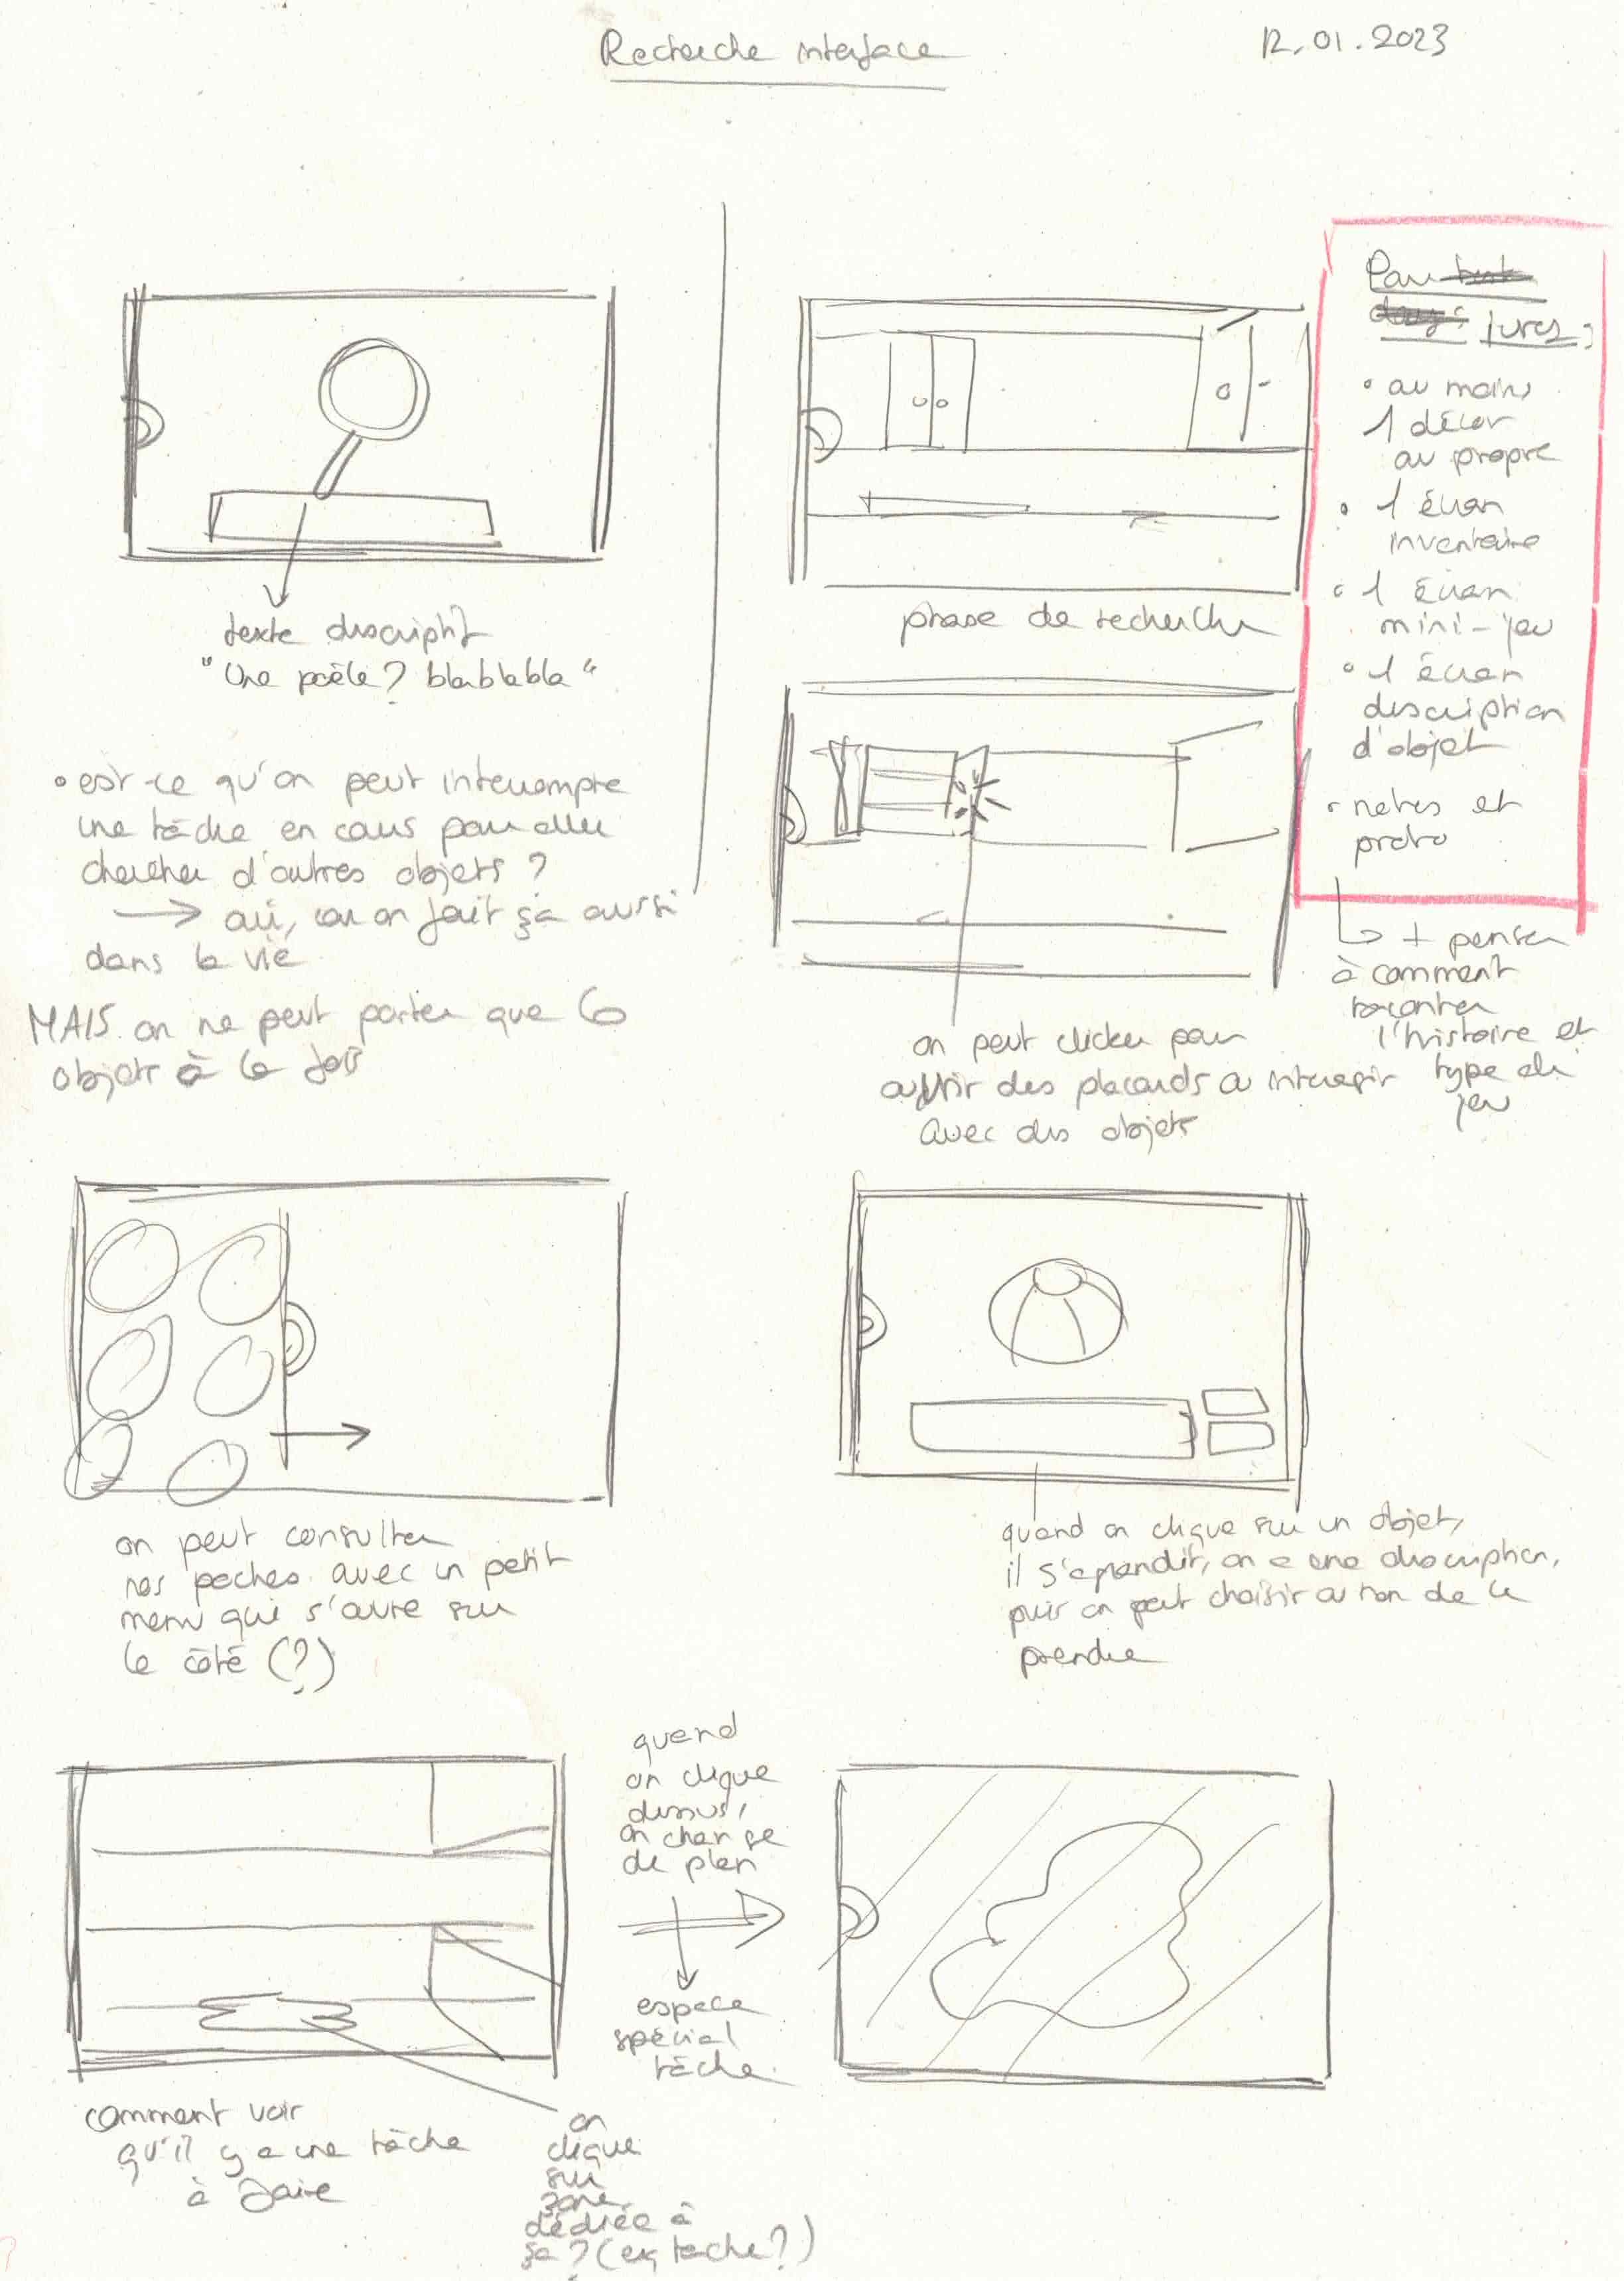 Recherche interface
12.01.2023
texte descriptif
"Une poêle? blablabla"
• est-ce qu'on peut interrompre
une tâche en cours pour aller
chercher d'autres objets ?
→ oui, car on fait ça aussi
dans la vie
MAIS on ne peut porter que 6
objets à la fois
phase de recherche
on peut clicker pour
ouvrir des placards ou interagir
avec des objets
Pour
jures :
• au moins
1 décor
au propre
• 1 écran
inventaire
• 1 écran
mini-jeu
• 1 écran
description
d'objet
• notes et
proto
↳ + penser
à comment
raconter
l'histoire et
type de
jeu
on peut consulter
nos poches avec un petit
menu qui s'ouvre sur
le côté (?)
quand on clique sur un objet,
il s'agrandit, on a une description,
puis on peut choisir ou non de le
prendre
quand
on clique
dessus,
on change
de plan
espace
spécial
tâche
comment voir
qu'il y a une tâche
à faire
on
clique
sur
zone
dédiée à
ça ? (ex tache ?)